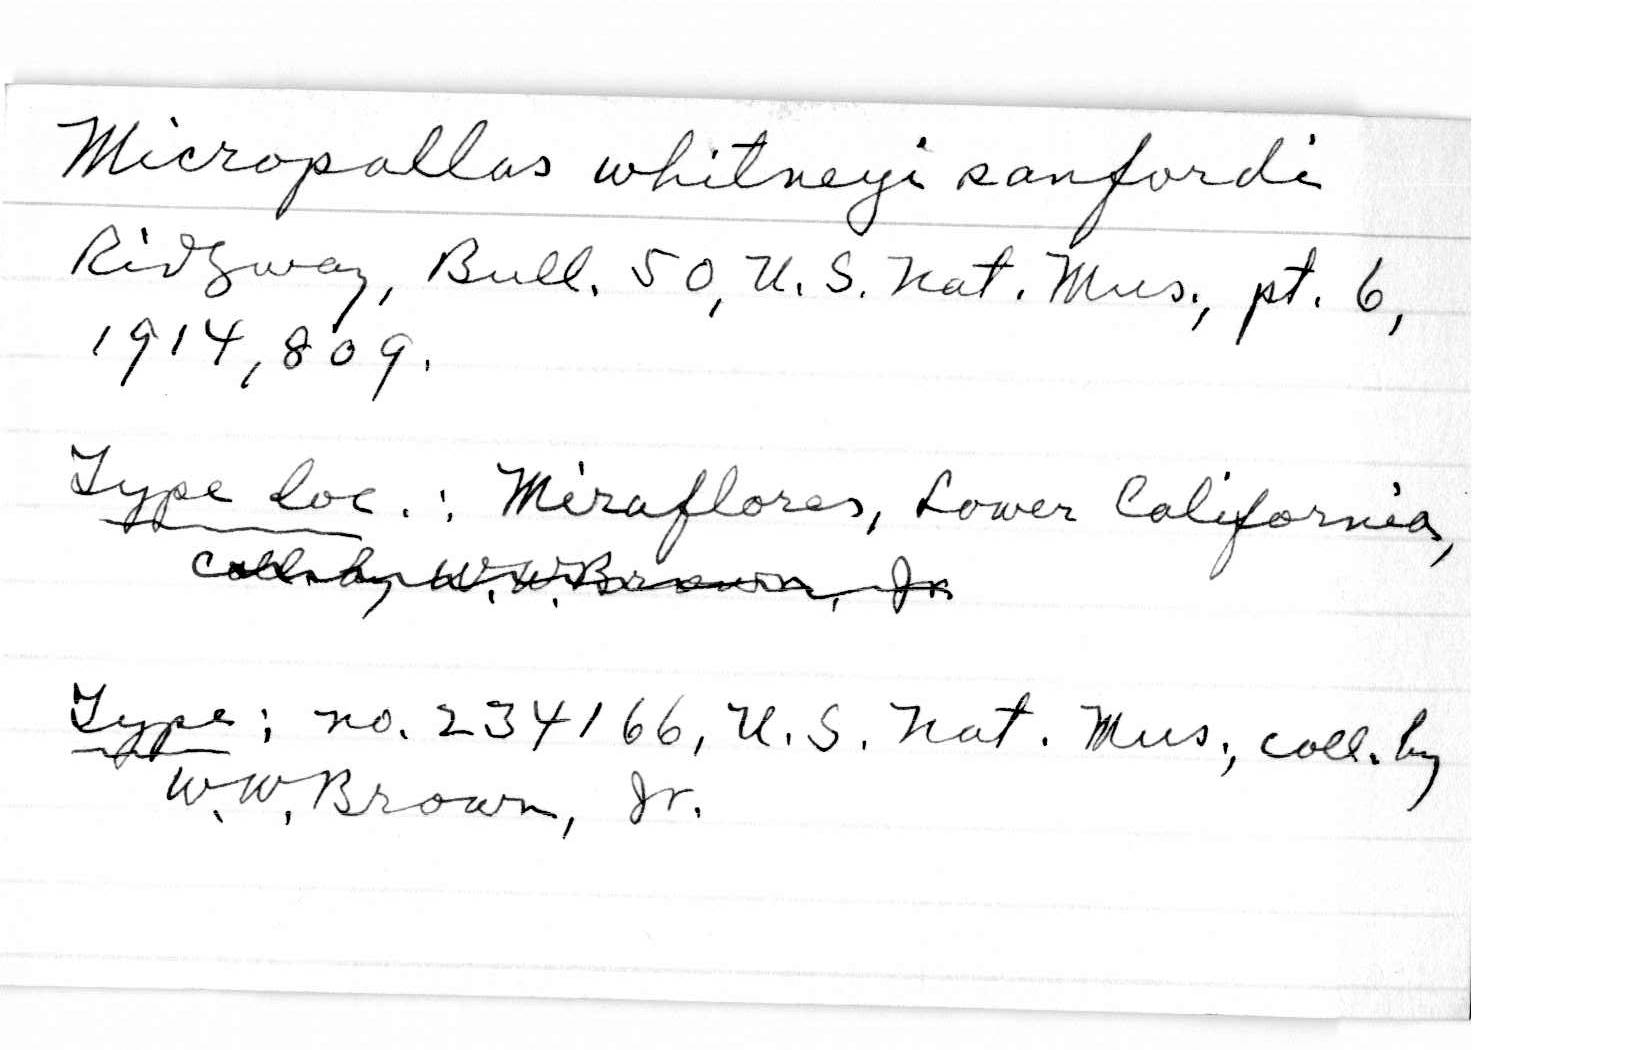 Micropallas whitneyi sanfordi
Ridgway, Bull. 50, U.S. Nat. Mus., pt. 6,
1914, 809.
Type loc.: Miraflores, Lower California,
coll. by W.W. Brown, Jr.
Type: no. 234166, U.S. Nat. Mus., coll. by
W.W. Brown, Jr.